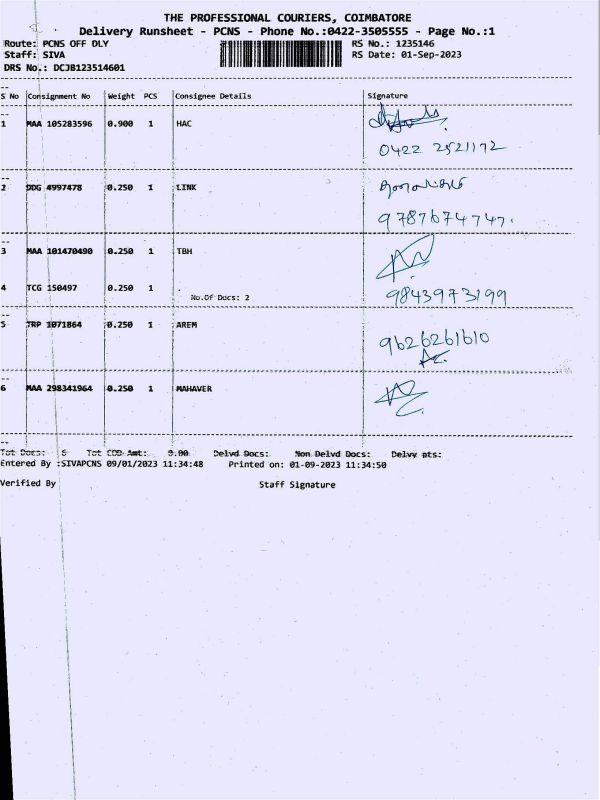 THE PROFESSIONAL COURIERS, COIMBATORE
Delivery Runsheet - PCNS - Phone No.:0422-3505555 - Page No.:1
Route: PCNS OFF DLY RS No.: 1235146
Staff: SIVA RS Date: 01-Sep-2023
DRS No.: DCJB123514601
S No Consignment No Weight PCS Consignee Details Signature
1 MAA 105283596 0.900 1 HAC
0422 2521172
2 DDG 4997478 0.250 1 LINK
9787674747.
3 MAA 101470490 0.250 1 TBH
4 TCG 150497 0.250 1 .
No.Of Docs: 2 9843973199
5 TRP 1071864 0.250 1 AREM
9626261610
6 MAA 298341964 0.250 1 MAHAVER
Tot Docs: 6 Tot COD Amt: 0.00 Delvd Docs: Non Delvd Docs: Delvy pts:
Entered By :SIVAPCNS 09/01/2023 11:34:48 Printed on: 01-09-2023 11:34:50
Verified By Staff Signature